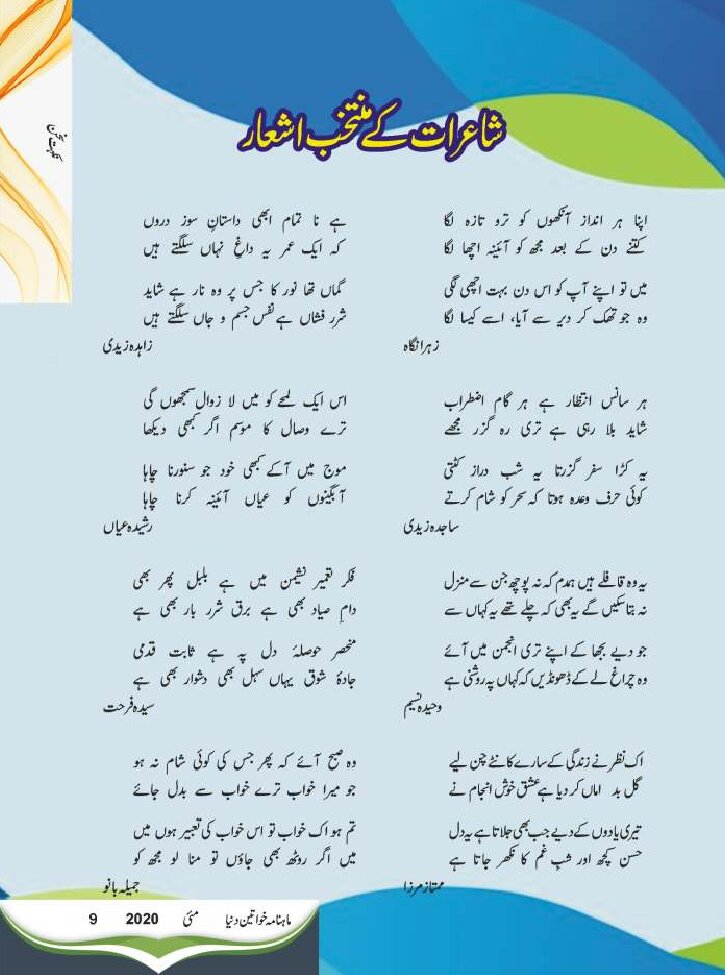 نکہتِ سخن
شاعرات کے منتخب اشعار
اپنا ہر انداز آنکھوں کو ترو تازہ لگا
کتنے دن کے بعد مجھ کو آئینہ اچھا لگا
میں تو اپنے آپ کو اس دن بہت اچھی لگی
وہ جو تھک کر دیر سے آیا، اسے کیسا لگا
زہرا نگاہ
ہر سانس انتظار ہے ہر گام اضطراب
شاید بلا رہی ہے تری رہ گزر مجھے
یہ کڑا سفر گزرتا یہ شب دراز کٹتی
کوئی حرف وعدہ ہوتا کہ سحر کو شام کرتے
ساجدہ زیدی
یہ وہ قافلے ہیں ہمدم کہ نہ پوچھ جن سے منزل
نہ بتا سکیں گے یہ بھی کہ چلے تھے یہ کہاں سے
جو دیے بجھا کے اپنے تری انجمن میں آئے
وہ چراغ لے کے ڈھونڈیں کہ کہاں پہ روشنی ہے
وحیدہ نسیم
اک نظر نے زندگی کے سارے کانٹے چن لیے
گل بد اماں کر دیا ہے عشق خوش انجام نے
تیری یادوں کے دیے جب بھی جلاتا ہے یہ دل
حسن کچھ اور شبِ غم کا نکھر جاتا ہے
ممتاز مرزا
ہے نا تمام ابھی داستانِ سوز دروں
کہ ایک عمر یہ داغِ نہاں سلگتے ہیں
گماں تھا نور کا جس پر وہ نار ہے شاید
شرر فشاں ہے نفس جسم و جاں سلگتے ہیں
زاہدہ زیدی
اس ایک لمحے کو میں لا زوال سمجھوں گی
ترے وصال کا موسم اگر کبھی دیکھا
موج میں آکے کبھی خود جو سنورنا چاہا
آبگینوں کو عیاں آئینہ کرنا چاہا
رشیدہ عیاں
فکر تعمیر نشیمن میں ہے بلبل پھر بھی
دامِ صیاد بھی ہے برق شرر بار بھی ہے
منحصر حوصلۂ دل پہ ہے ثابت قدمی
جادۂ شوق یہاں سہل بھی دشوار بھی ہے
سیدہ فرحت
وہ صبح آئے کہ پھر جس کی کوئی شام نہ ہو
جو میرا خواب ترے خواب سے بدل جائے
تم ہو اک خواب تو اس خواب کی تعبیر ہوں میں
میں اگر روٹھ بھی جاؤں تو منا لو مجھ کو
جمیلہ بانو
ماہنامہ خواتین دنیا مئی 2020 9